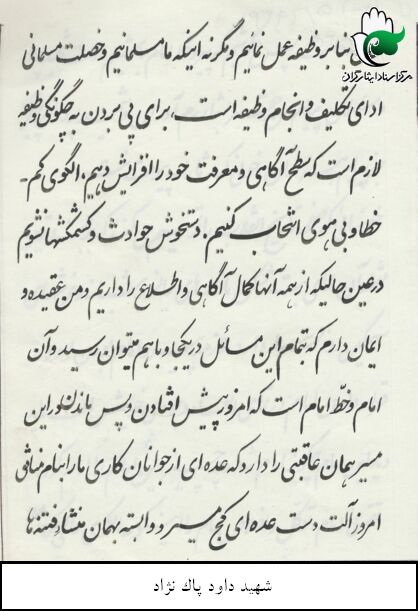 بنا بر وظیفه عمل نمائیم وگرنه اینکه ما مسلمانیم و خصلت مسلمانی
ادای تکلیف و انجام وظیفه است، برای پی بردن به چگونگی وظیفه
لازم است که سطح آگاهی و معرفت خود را افزایش دهیم، الگوی کم-
خطا و بی هوی انتخاب کنیم، دستخوش حوادث و کشمکشها نشویم
در عین حالیکه از همه آنها کمال آگاهی و اطلاع را داریم و من عقیده و
ایمان دارم که بتمام این مسائل در یکجا و با هم میتوان رسید و آن
امام و خطّ امام است که امروز پیش افتادن و پس ماندن در این
مسیر همان عاقبتی را دارد که عده ای از جوانان کاری ما را بنام منافق
امروز آلت دست عده ای کج مسیر و وابسته بهمان منشاء فتنه ها
شهید داود پاک نژاد
مرکز اسناد ایثارگران